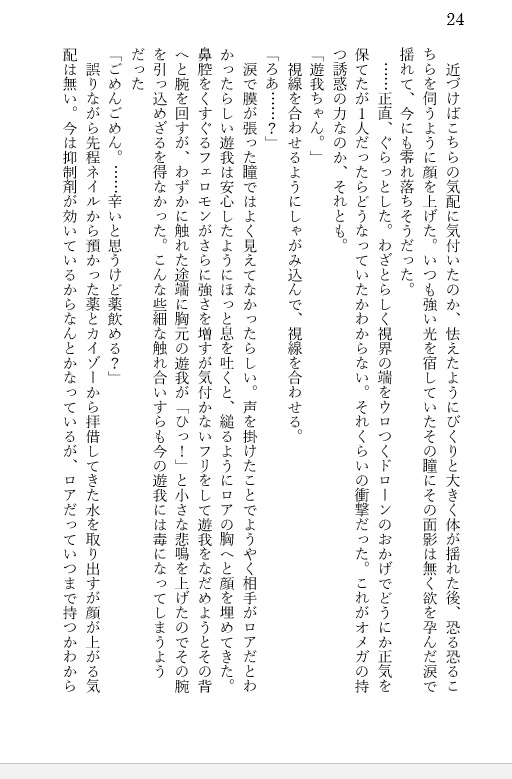 24
　近づけばこちらの気配に気付いたのか、怯えたようにびくりと大きく体が揺れた後、恐る恐るこ
ちらを伺うように顔を上げた。いつも強い光を宿していたその瞳にその面影は無く欲を孕んだ涙で
揺れて、今にも零れ落ちそうだった。
　……正直、ぐらっとした。わざとらしく視界の端をウロつくドローンのおかげでどうにか正気を
保てたが１人だったらどうなっていたかわからない。それくらいの衝撃だった。これがオメガの持
つ誘惑の力なのか、それとも。
「遊我ちゃん。」
　視線を合わせるようにしゃがみ込んで、視線を合わせる。
「ろあ……？」
　涙で膜が張った瞳ではよく見えてなかったらしい。声を掛けたことでようやく相手がロアだとわ
かったらしい遊我は安心したようにほっと息を吐くと、縋るようにロアの胸へと顔を埋めてきた。
鼻腔をくすぐるフェロモンがさらに強さを増すが気付かないフリをして遊我をなだめようとその背
へと腕を回すが、わずかに触れた途端に胸元の遊我が「ひっ！」と小さな悲鳴を上げたのでその腕
を引っ込めざるを得なかった。こんな些細な触れ合いすらも今の遊我には毒になってしまうよう
だった
「ごめんごめん。……辛いと思うけど薬飲める？」
　誤りながら先程ネイルから預かった薬とカイゾーから拝借してきた水を取り出すが顔が上がる気
配は無い。今は抑制剤が効いているからなんとかなっているが、ロアだっていつまで持つかわから